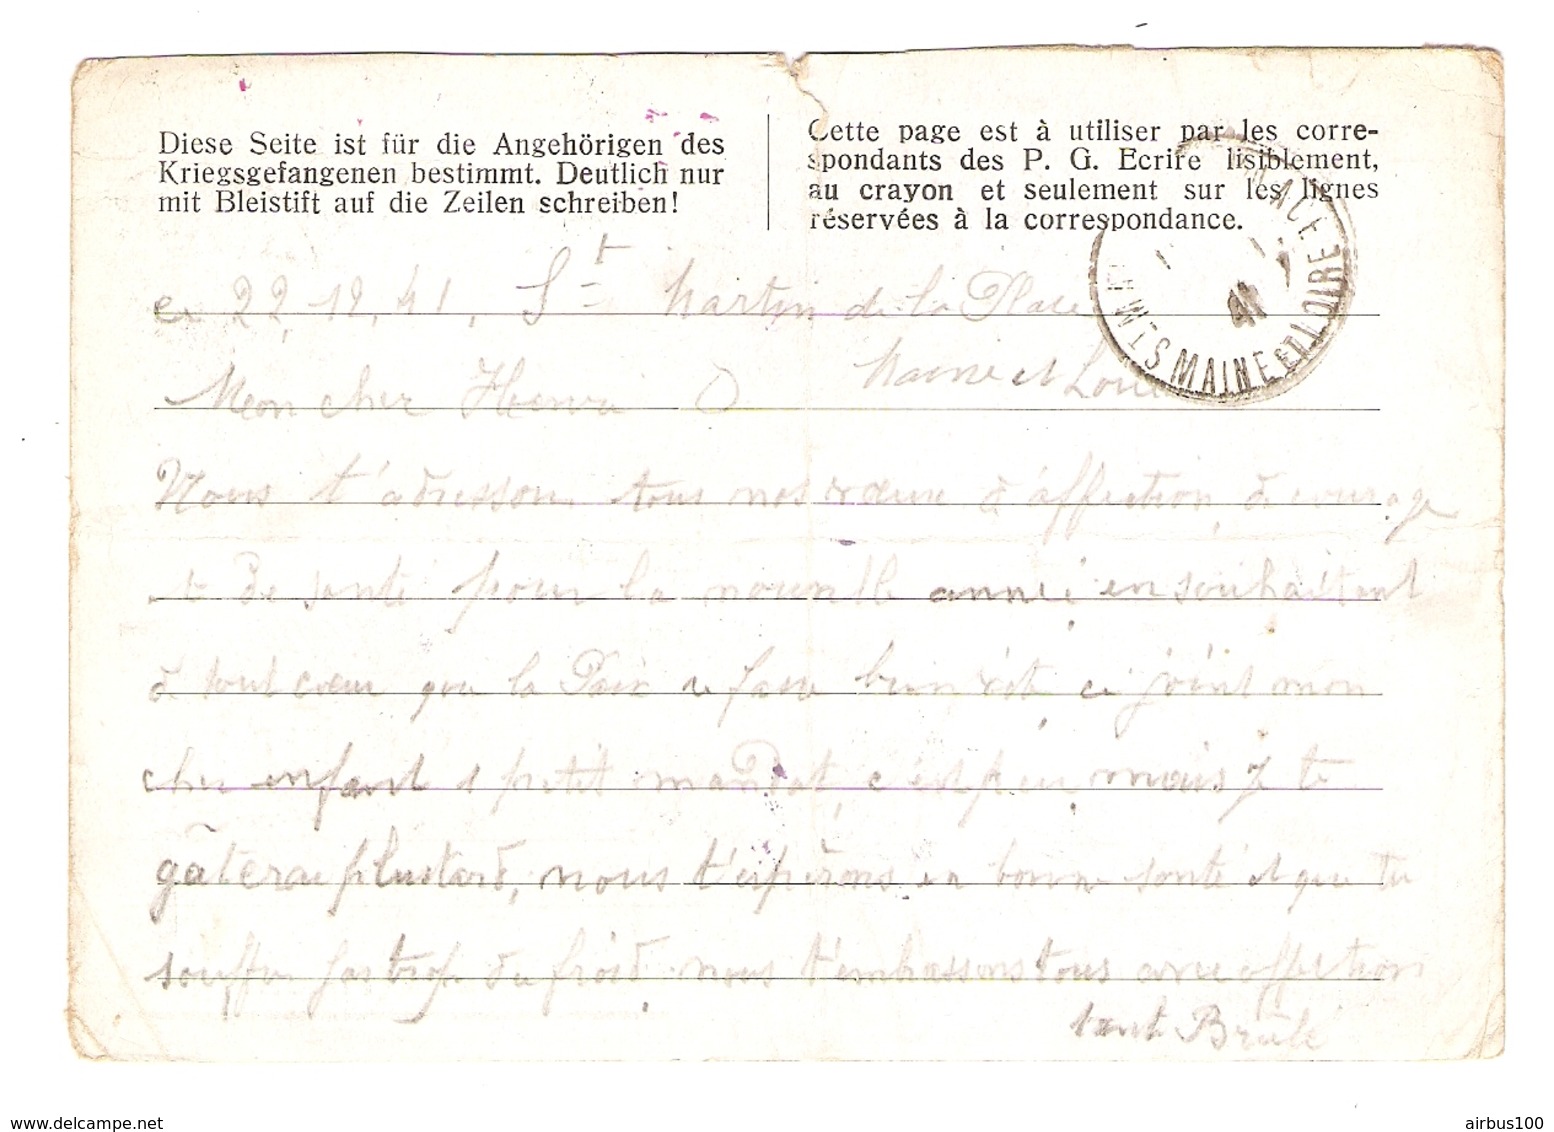 Diese Seite ist für die Angehörigen des
Kriegsgefangenen bestimmt. Deutlich nur
mit Bleistift auf die Zeilen schreiben!
Cette page est à utiliser par les corre-
spondants des P. G. Ecrire lisiblement,
au crayon et seulement sur les lignes
réservées à la correspondance.
22.12.41. St Martin de la Place
Maine et Loire
Mon cher Henri
Nous t'adressons tous nos vœux d'affection, de courage
et de santé pour la nouvelle année en souhaitant
de tout cœur que la Paix se fasse bientôt ci joint mon
cher enfant 1 petit mandat, c'est peu mais je te
gâterai plus tard, nous t'espérons en bonne santé et que tu
souffre pas trop du froid. nous t'embrassons tous avec affection
tante Brulé
MAINE ET LOIRE
41
delcampe.net
airbus100